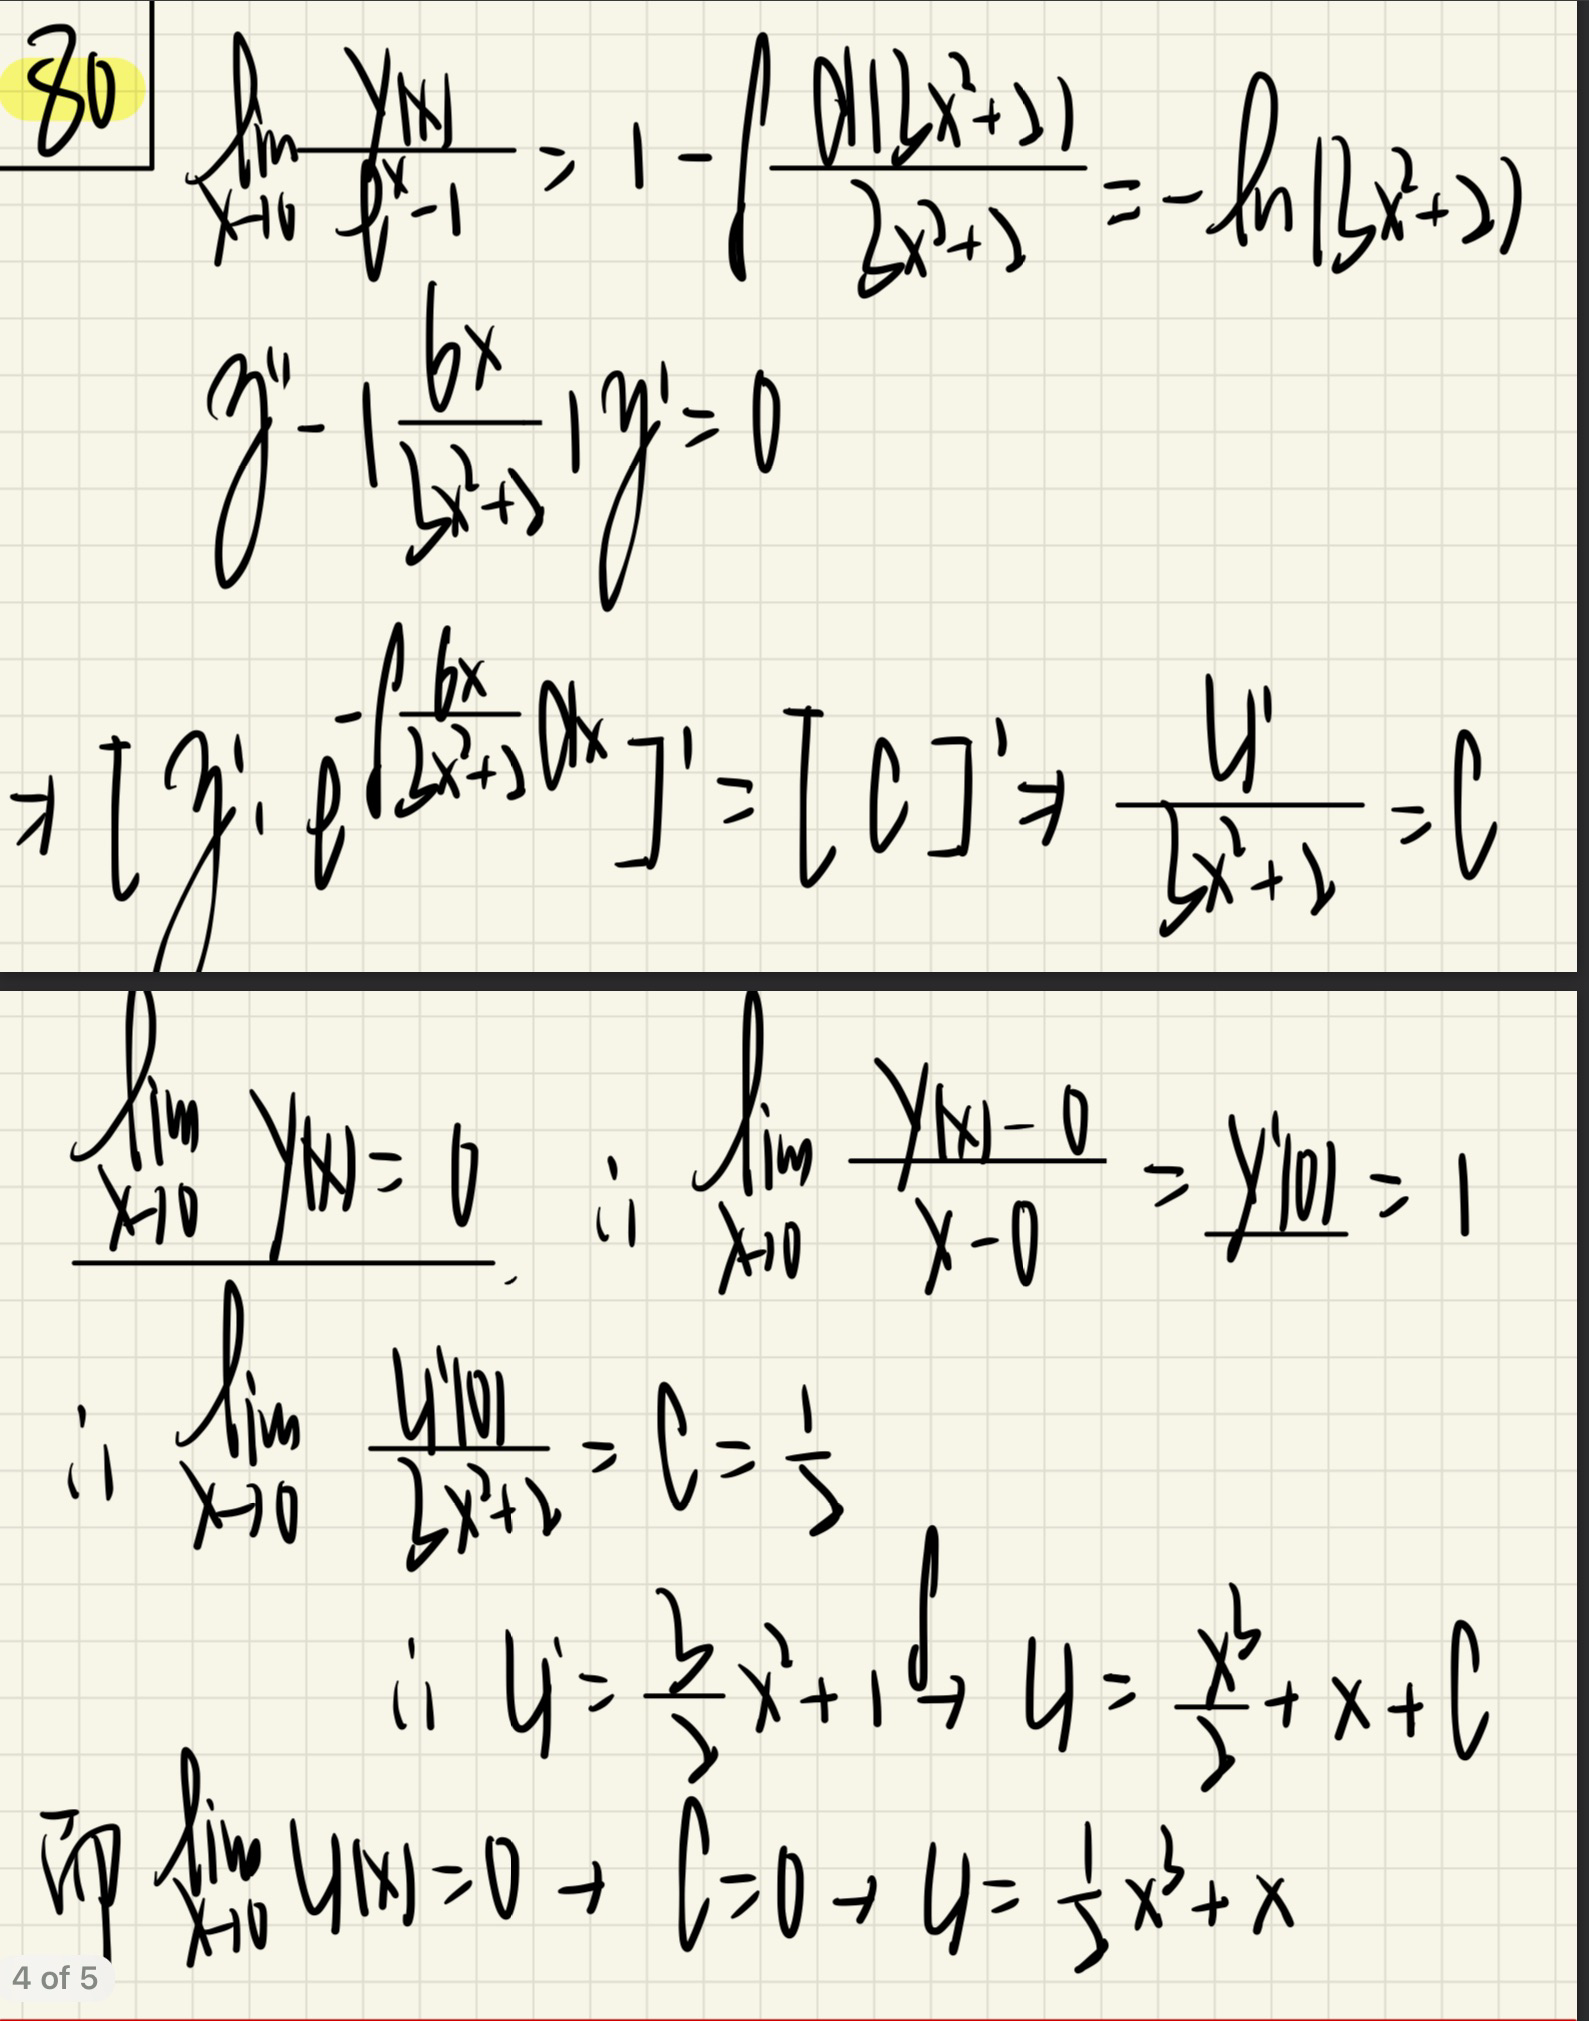 80 lim x→0 y(x)/(e^x-1) = 1 -∫ d(3x²+2)/(3x²+2) = -ln(3x²+2)
y'' - (6x/(3x²+2)) y' = 0
⇒ [y'· e^(-∫ 6x/(3x²+2) dx)]' = [C]' ⇒ y'/(3x²+2) = C
lim x→0 y(x) = 0, ∴ lim x→0 (y(x)-0)/(x-0) = y'(0) = 1
∴ lim x→0 y'(0)/(3x²+2) = C = 1/2
∴ y' = 3/2 x² + 1 ∫→ y = x³/2 + x + C
而 lim x→0 y(x) = 0 → C = 0 → y = 1/2 x³ + x
4 of 5